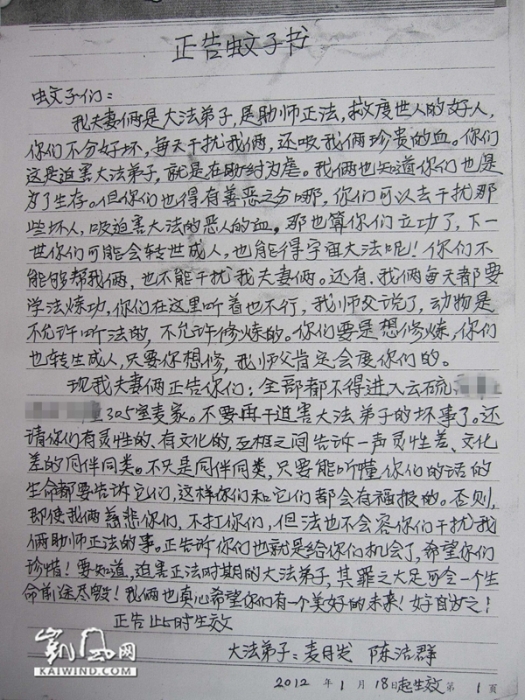 正告蚊子书
蚊子们：
我夫妻俩是大法弟子，是助师正法，救度世人的好人，
你们不分好坏，每天干扰我俩，还吸我俩珍贵的血。你们
这是迫害大法弟子，就是在助纣为虐。我俩也知道你们也是
为了生存。但你们也得有善恶之分哪，你们可以去干扰那
些坏人，吸迫害大法的恶人的血，那也算你们立功了，下一
世你们可能会转世成人，也能得宇宙大法呢！你们不
能够帮我俩，也不能干扰我夫妻俩。还有，我俩每天都要
学法炼功，你们在这里听着也不行，我师父说了，动物是
不允许听法的，不允许修炼的。你们要是想修炼，你们
也转生成人，只要你想修，我师父肯定会度你们的。
现我夫妻俩正告你们：全部都不得进入云硫
305室麦家。不要再干迫害大法弟子的坏事了。还
请你们有灵性的、有文化的，互相之间告诉一声灵性差、文化
差的同伴同类。不只是同伴同类，只要能听懂你们的话的
生命都要告诉它们，这样你们和它们都会有福报的。否则，
即使我俩慈悲你们，不打你们，但法也不会容你们干扰我
俩助师正法的事。正告你们也就是给你们机会了，希望你们
珍惜！要知道，迫害正法时期的大法弟子，其罪之大足可令一个生
命前途尽毁！我俩也真心希望你们有一个美好的未来！好自为之！
正告此时生效
大法弟子：麦月发 陈洁群
2012 年 1 月 18日起生效 第 1 頁
凯风网
KAIWIND.COM